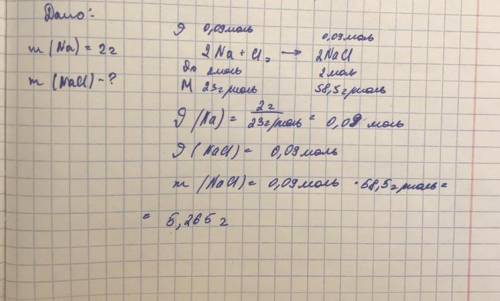 Дано:
m (Na) = 2г
m (NaCl) - ?
υ 0,09моль 0,09моль
2Na + Cl₂ → 2NaCl
2моль 2моль
M 23г/моль 58,5г/моль
υ (Na) = 2г / 23г/моль = 0,09 моль
υ (NaCl) = 0,09моль
m (NaCl) = 0,09моль · 58,5г/моль =
= 5,265г